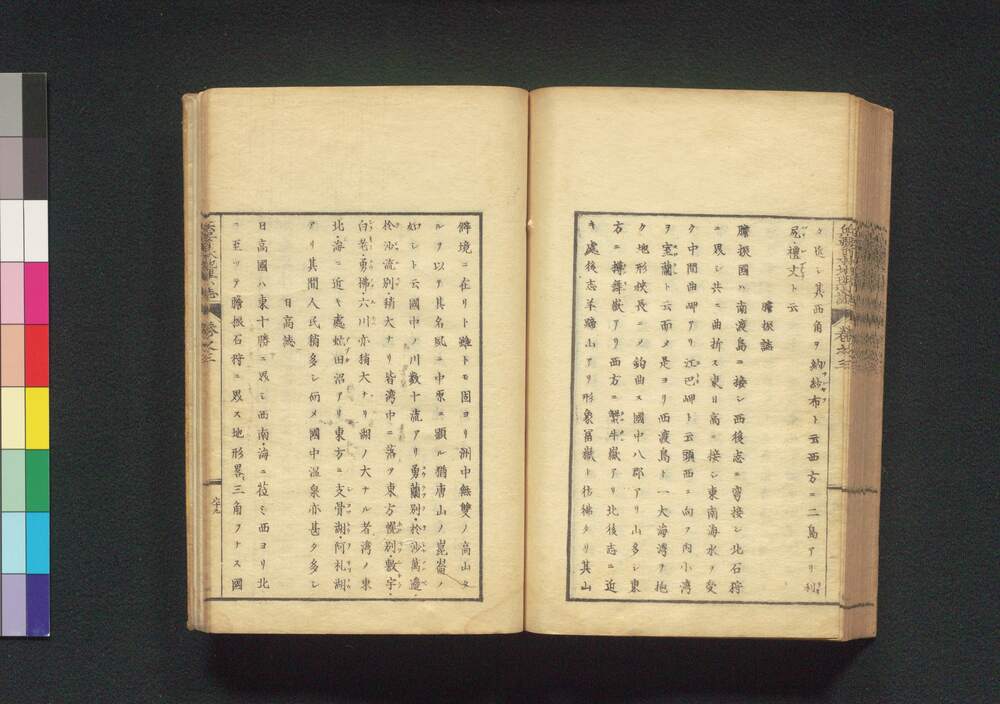 ク延シ其西角ヲ納紗布ト云西方ニ二島アリ利
尻・禮丈ト云
膽振誌
膽振國ハ南渡島ニ接シ西後志ニ密接シ北石狩
ニ界シ共ニ曲折ス東日高ニ接シ東南海水ヲ受
ク中間曲岬アリ江巴岬ト云頭西ニ向ヲ內小灣
ヲ室蘭ト云而メ是ヨリ西渡島ト一大海灣ヲ抱
ク地形狹長ニメ鈎曲ス國中八郡アリ山多シ東
方ニ樽前嶽アリ西方ニ蟹牛嶽アリ北後志ニ近
キ處後志羊蹄山アリ形象冨嶽ト彷彿タリ其山
僻境ニ在リト雖トモ固ヨリ洲中無雙ノ高山タ
ルヲ以テ其名夙ニ中原ニ顕ル猶唐山ノ崑崙ノ
如シト云國中ノ川數十流アリ勇蘭別・於沙萬邊・
於沙流別・稍大ナリ皆灣中ニ落ツ東方幌別・敷宇・
白老・勇拂・六川亦稍大ナリ湖ノ大ナル者灣ノ東
北・海ニ近キ處ニ沼アリ東方ニ支骨湖・阿札湖
アリ其間人民稍多シ而メ國中溫泉亦甚タ多シ
日高誌
日高國ハ東十勝ニ界シ西南・海ニ莅ミ西ヨリ北
ニ至ツテ膽振石狩ニ界ス地形畧三角ヲナス國
卷之三
六十九